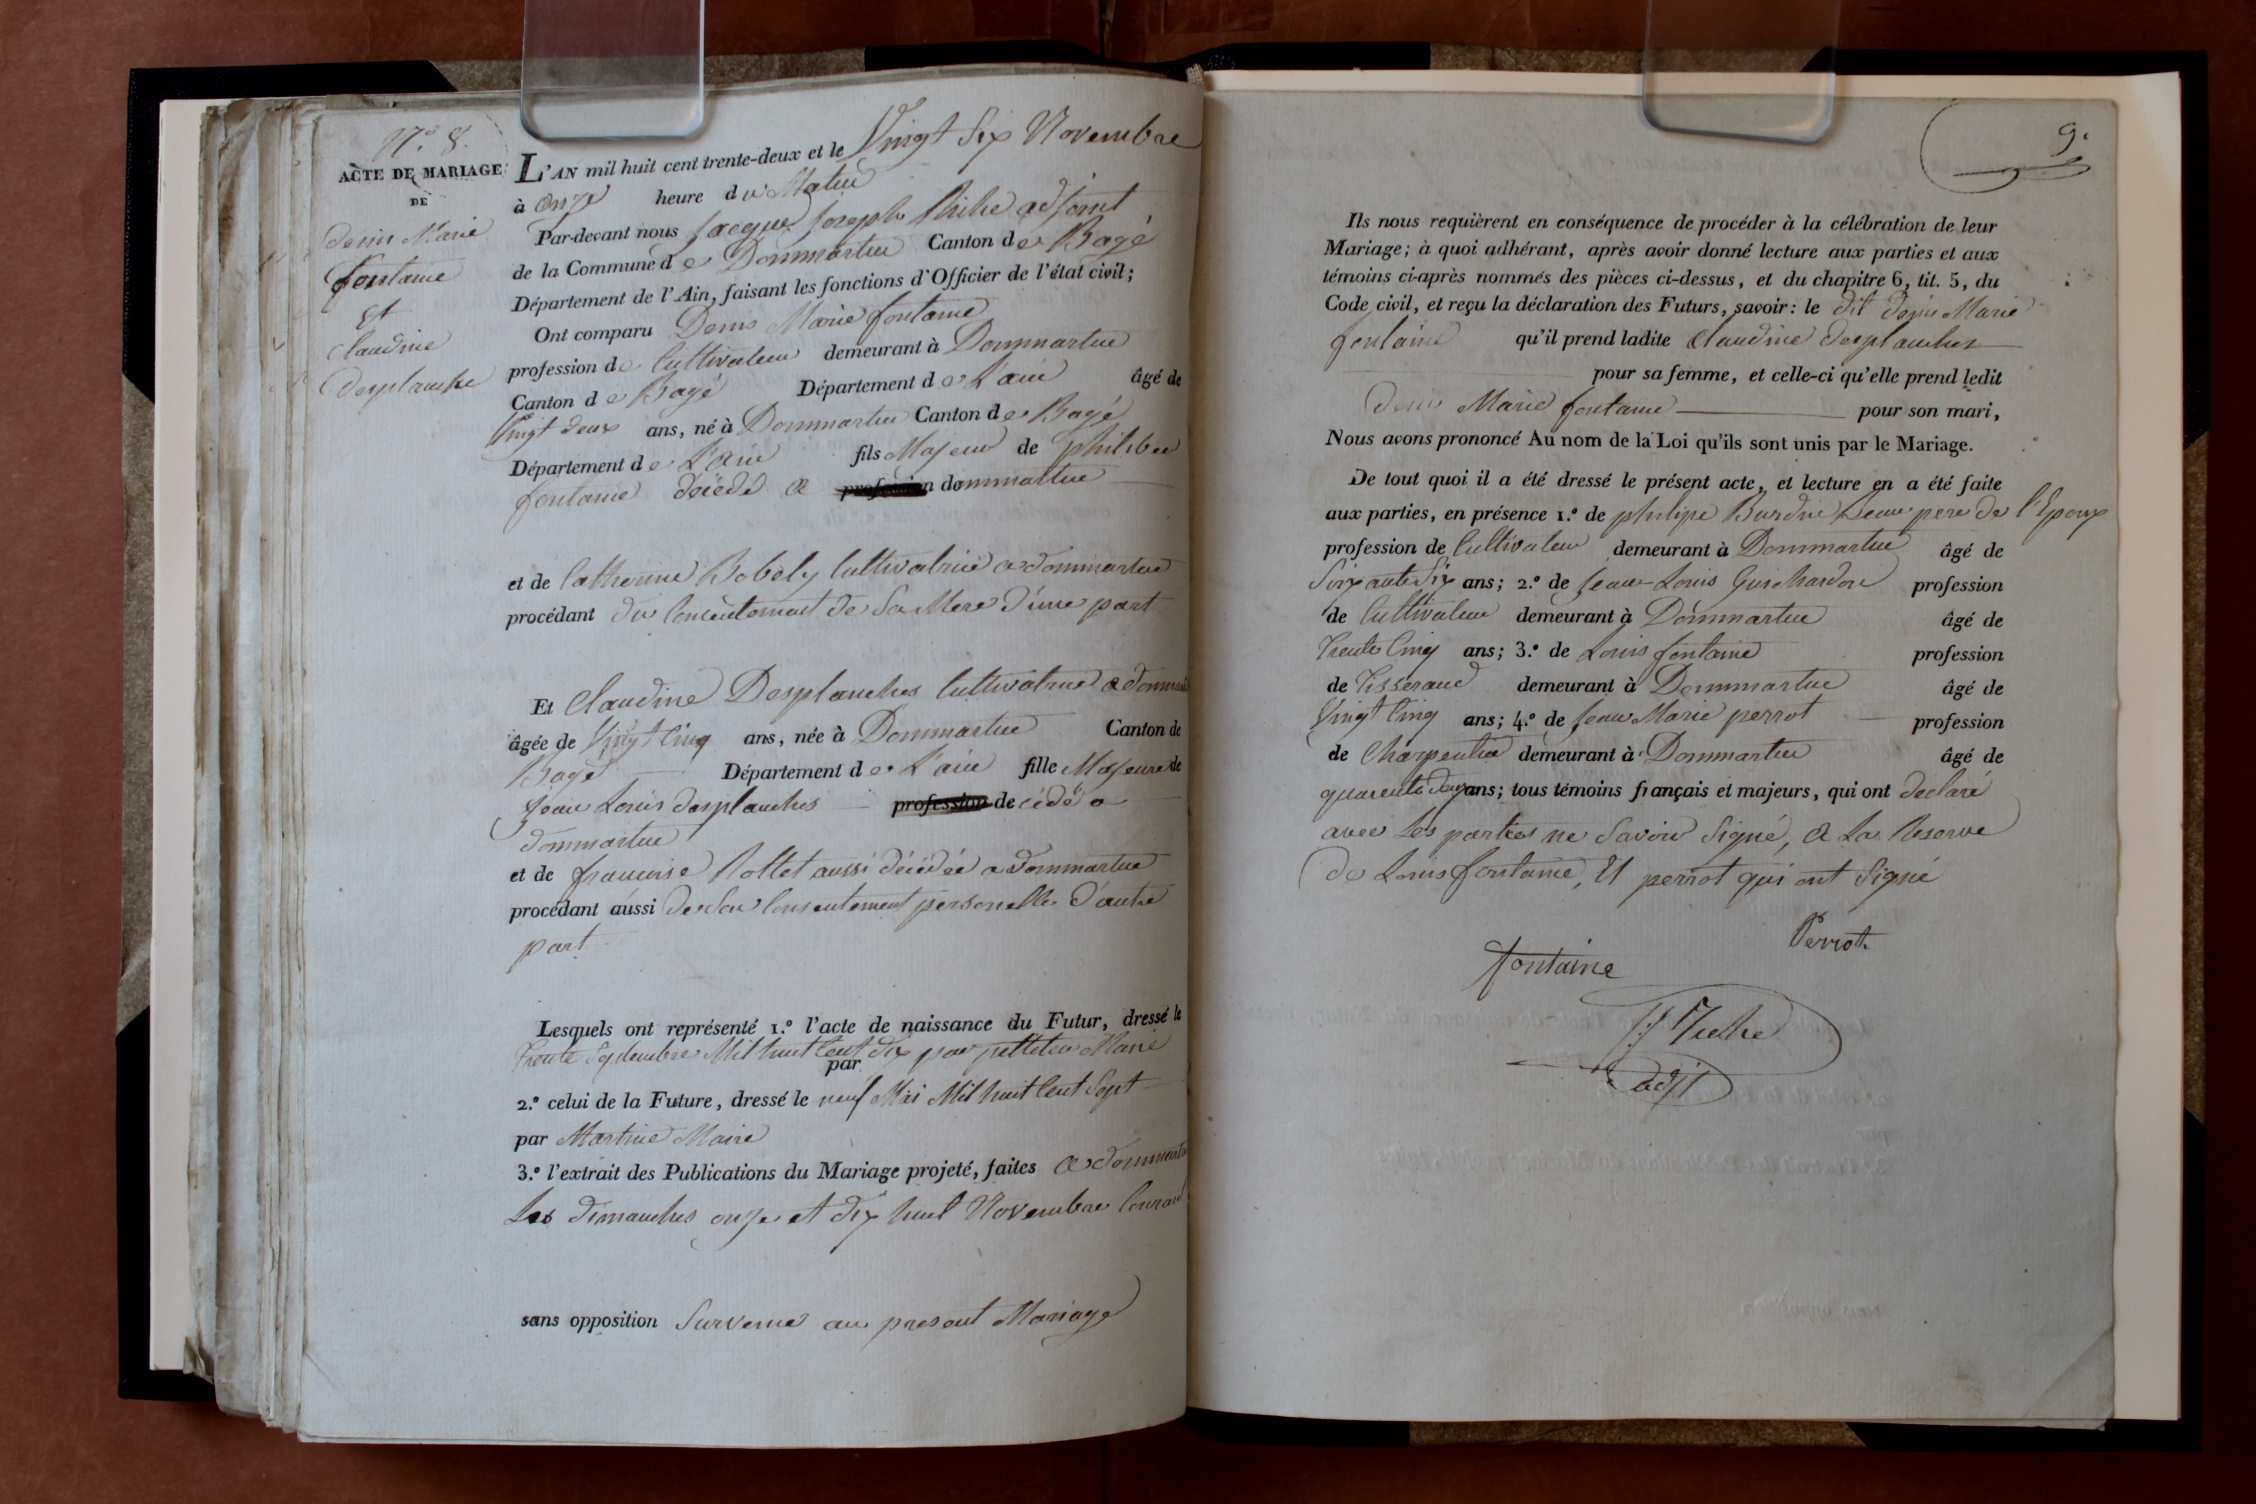 N.° 8.
ACTE DE MARIAGE
DE
denis Marie
fontaine
Et
claudine
desplanche
L'AN mil huit cent trente-deux et le Vingt Six Novembre
à onze heure du Matin
Par-devant nous Jacque Joseph adjoint
de la Commune de Dommartin Canton de Bagé
Département de l'Ain, faisant les fonctions d'Officier de l'état civil;
Ont comparu Denis Marie fontaine
profession de Cultivateur demeurant à Dommartin
Canton de Bagé Département de L'ain âgé de
Vingt deux ans, né à Dommartin Canton de Bagé
Département de L'ain fils Majeur de philiber
fontaine décédé a profession dommartin
et de Catherine Bobely Cultivatrice a dommartin
procédant du Consentement de Sa Mere d'une part
Et Claudine Desplanches Cultivatrice a dommar
âgée de Vingt Cinq ans, née à Dommartin Canton de
Bagé Département de L'ain fille Majeure de
Jean Louis desplanches profession décédé a
dommartin
et de francoise Rollet aussi décédée a dommartin
procédant aussi de Son Consentement personelle d'autre
part
Lesquels ont représenté 1.° l'acte de naissance du Futur, dressé le
trente Septembre Mil huit Cent dix par Maire
par
2.° celui de la Future, dressé le neuf Mai Mil huit Cent Sept
par Martine Maire
3.° l'extrait des Publications du Mariage projeté, faites a dommartin
Les dimanches onze et dix huit Novembre Courant
sans opposition Survenue au present Mariage
9.
Ils nous requièrent en conséquence de procéder à la célébration de leur
Mariage; à quoi adhérant, après avoir donné lecture aux parties et aux
témoins ci-après nommés des pièces ci-dessus, et du chapitre 6, tit. 5, du
Code civil, et reçu la déclaration des Futurs, savoir: le dit denis Marie
fontaine qu'il prend ladite Claudine desplanches
pour sa femme, et celle-ci qu'elle prend ledit
denis Marie fontaine pour son mari,
Nous avons prononcé Au nom de la Loi qu'ils sont unis par le Mariage.
De tout quoi il a été dressé le présent acte, et lecture en a été faite
aux parties, en présence 1.° de philipe Burdin beau pere de l'Epoux
profession de Cultivateur demeurant à Dommartin âgé de
Soixante Six ans; 2.° de Jean-Louis Guichardon profession
de Cultivateur demeurant à Dommartin âgé de
trente Cinq ans; 3.° de Louis fontaine profession
de Tisserand demeurant à Dommartin âgé de
Vingt Cinq ans; 4.° de Jean Marie perrot profession
de Charpentier demeurant à Dommartin âgé de
quarente deux ans; tous témoins français et majeurs, qui ont declaré
avec Les parties ne Savoir Signé, a La Reserve
de Louis fontaine, Et perrot qui ont Signé
Perrot
fontaine
adjt